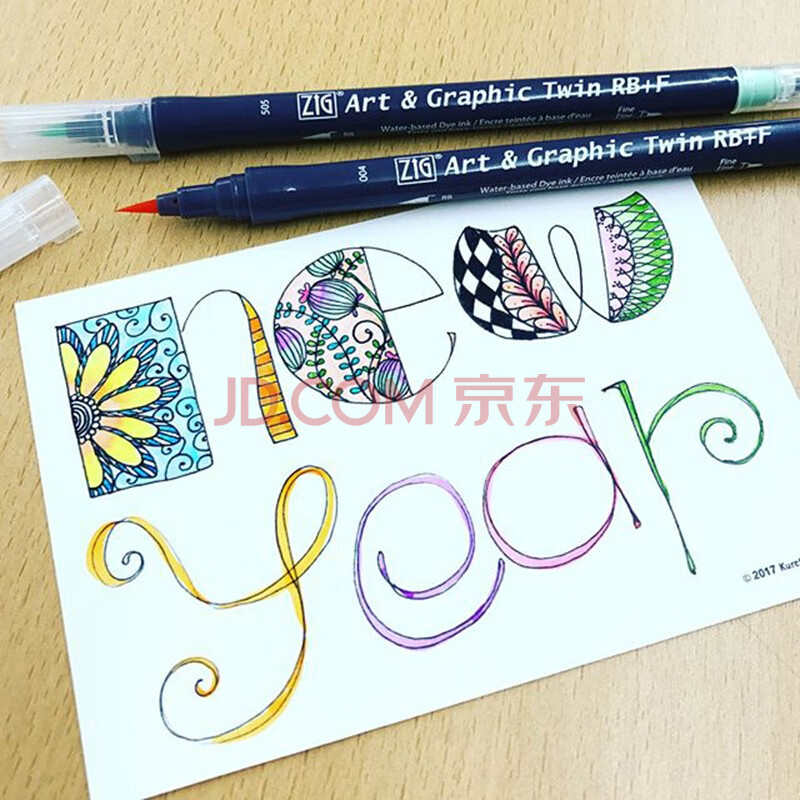 505 ZIG® Art & Graphic Twin RB+F
RB Water-based Dye ink / Encre teintée à base d'eau Fine
004 ZIG® Art & Graphic Twin RB+F
RB Water-based Dye ink / Encre teintée à base d'eau Fine
new
JD.COM 京东
year
© 2017